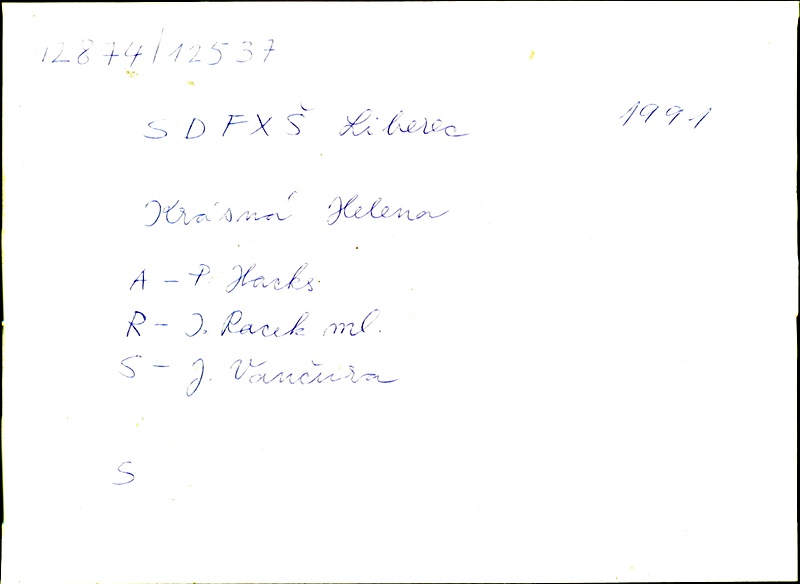 12874/12537
SDFXŠ Liberec 1991
Krásná Helena
A - P. Hacks
R - J. Racek ml.
S - J. Vančura
S